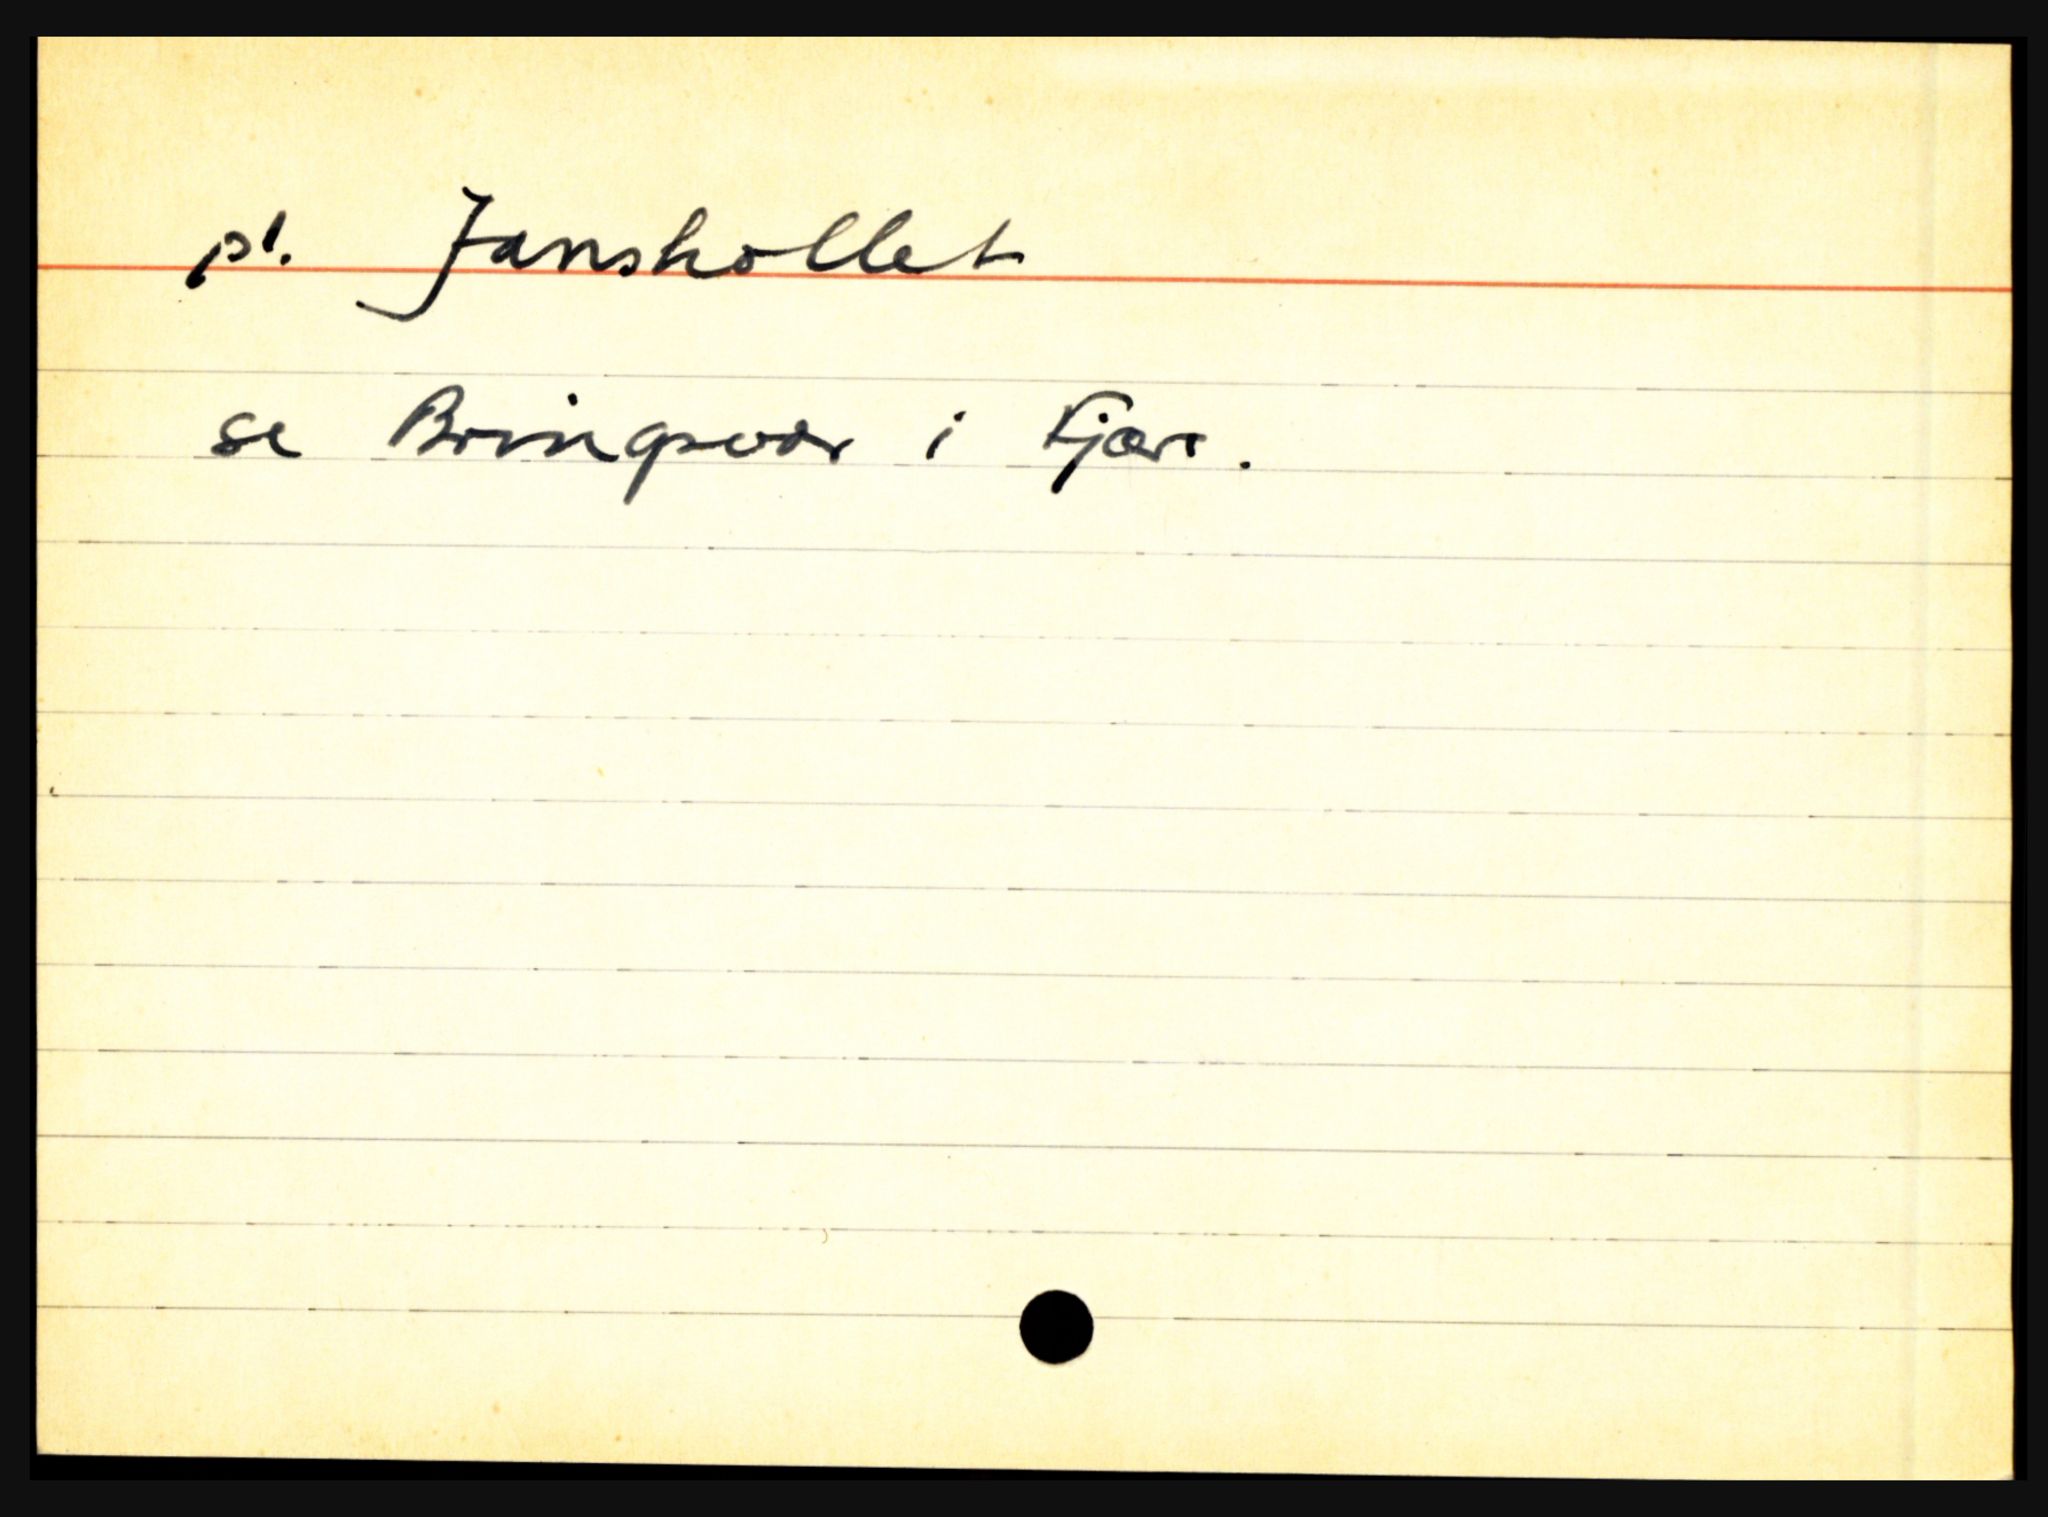 pl. Janshollet
se Bringsvær i Fjære.